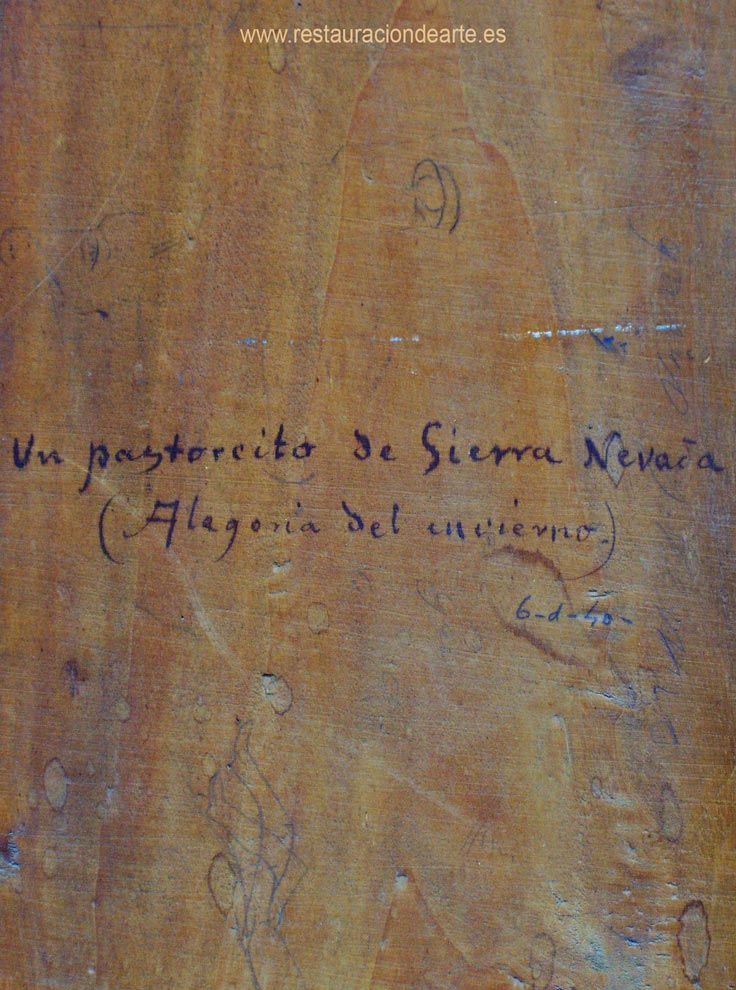 www.restauraciondearte.es
Un pastorcito de Sierra Nevada
(Alegoria del invierno.)
6-d-40-